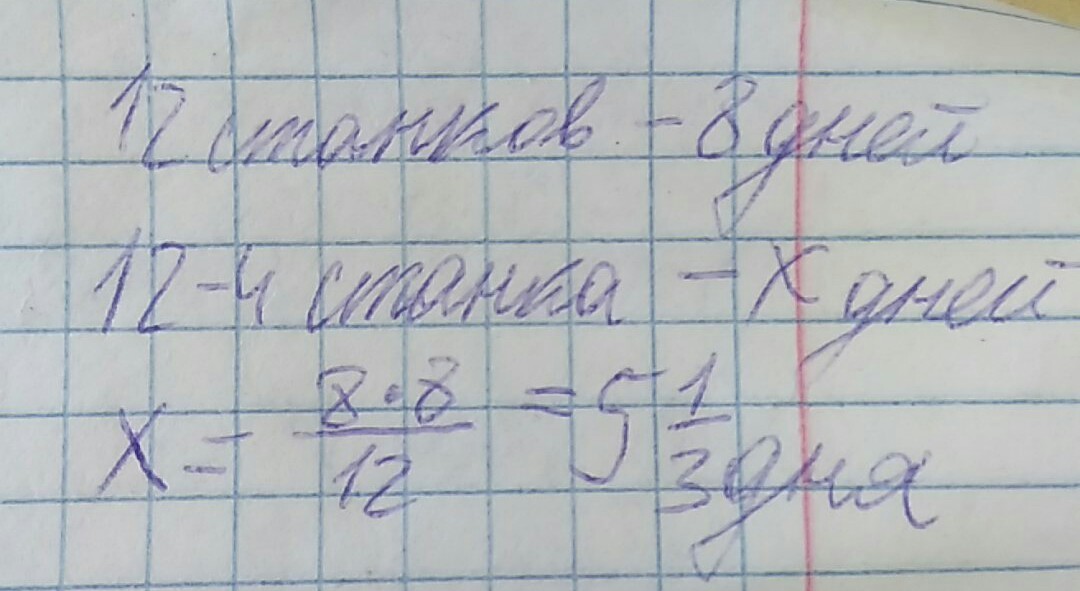 12 станков - 8 дней
12-4 станка - X дней
X = 8·8/12 = 5 1/3 дня